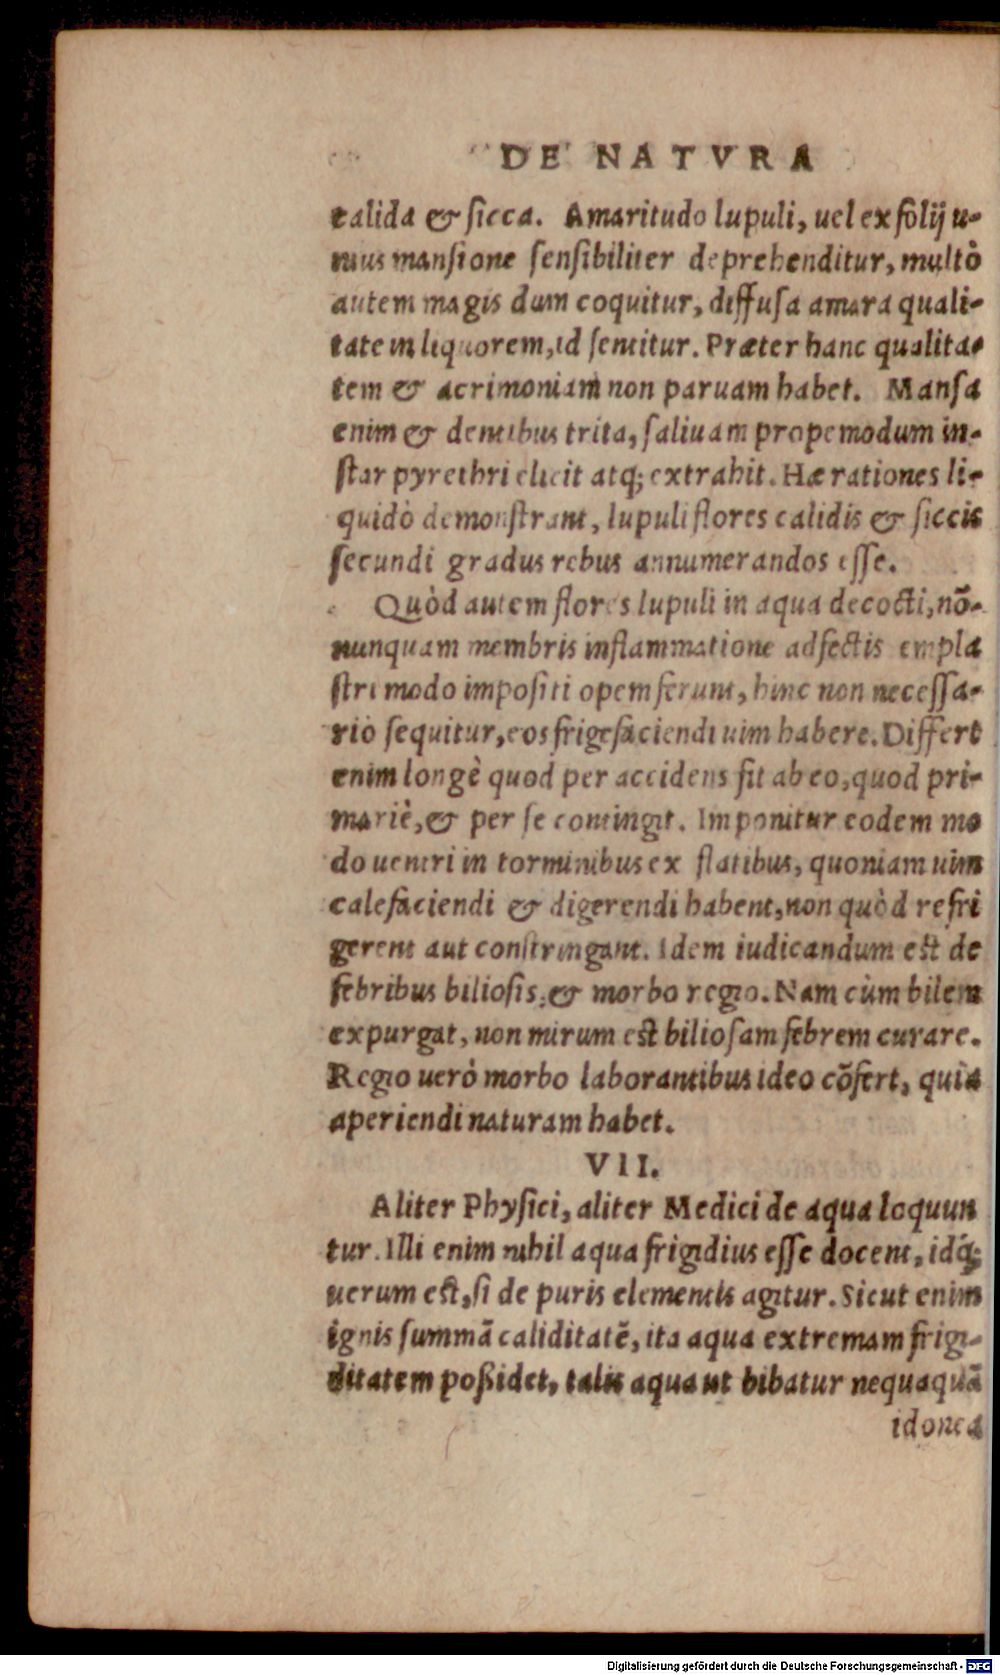 DE NATVRA
calida & ſicca. Amaritudo lupuli, uel ex folij u-
nius manſione ſenſibiliter deprehenditur, multò
autem magis dum coquitur, diffuſa amara quali-
tate in liquorem, id ſentitur. Præter hanc qualita-
tem & acrimoniam non paruam habet. Manſa
enim & dentibus trita, ſaliuam propemodum in-
ſtar pyrethri elicit atq; extrahit. Hæ rationes li-
quidò demonſtrant, lupuli flores calidis & ſiccis
ſecundi gradus rebus annumerandos eſſe.
Quòd autem flores lupuli in aqua decocti, nõ-
nunquam membris inflammatione adfectis empla
ſtri modo impoſiti opem ferunt, hinc non neceſſa-
riò ſequitur, eos frigefaciendi uim habere. Differt
enim longè quod per accidens fit ab eo, quod pri-
mariè, & per ſe contingit. Imponitur eodem mo
do uentri in torminibus ex flatibus, quoniam uim
calefaciendi & digerendi habent, non quòd refri
gerent aut conſtringant. Idem iudicandum eſt de
febribus bilioſis, & morbo regio. Nam cùm bilem
expurgat, non mirum eſt bilioſam febrem curare.
Regio uerò morbo laborantibus ideo cõfert, quia
aperiendi naturam habet.
VII.
Aliter Phyſici, aliter Medici de aqua loquun
tur. Illi enim nihil aqua frigidius eſſe docent, idq́;
uerum eſt, ſi de puris elementis agitur. Sicut enim
ignis ſummã caliditatẽ, ita aqua extremam frigi-
ditatem poßidet, talis aqua ut bibatur nequaquã
idonea
Digitalisierung gefördert durch die Deutsche Forschungsgemeinschaft - DFG